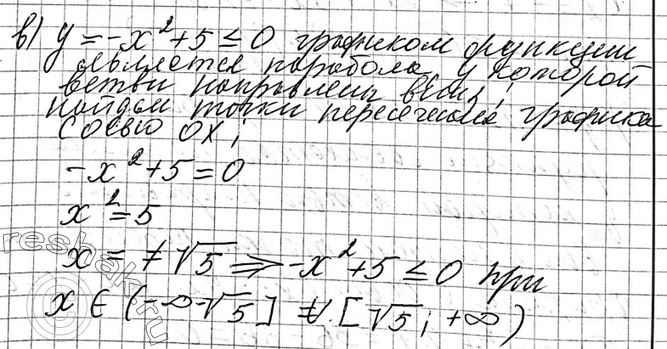 в) y = -x² + 5 ≤ 0 графиком функции
является парабола у которой
ветви направлены вниз;
найдем точки пересечения графика
с осью OX;
-x² + 5 = 0
x² = 5
x = ±√5 ⇒ -x² + 5 ≤ 0 при
x ∈ (-∞ -√5] ∪ [√5; +∞)
reshak.ru